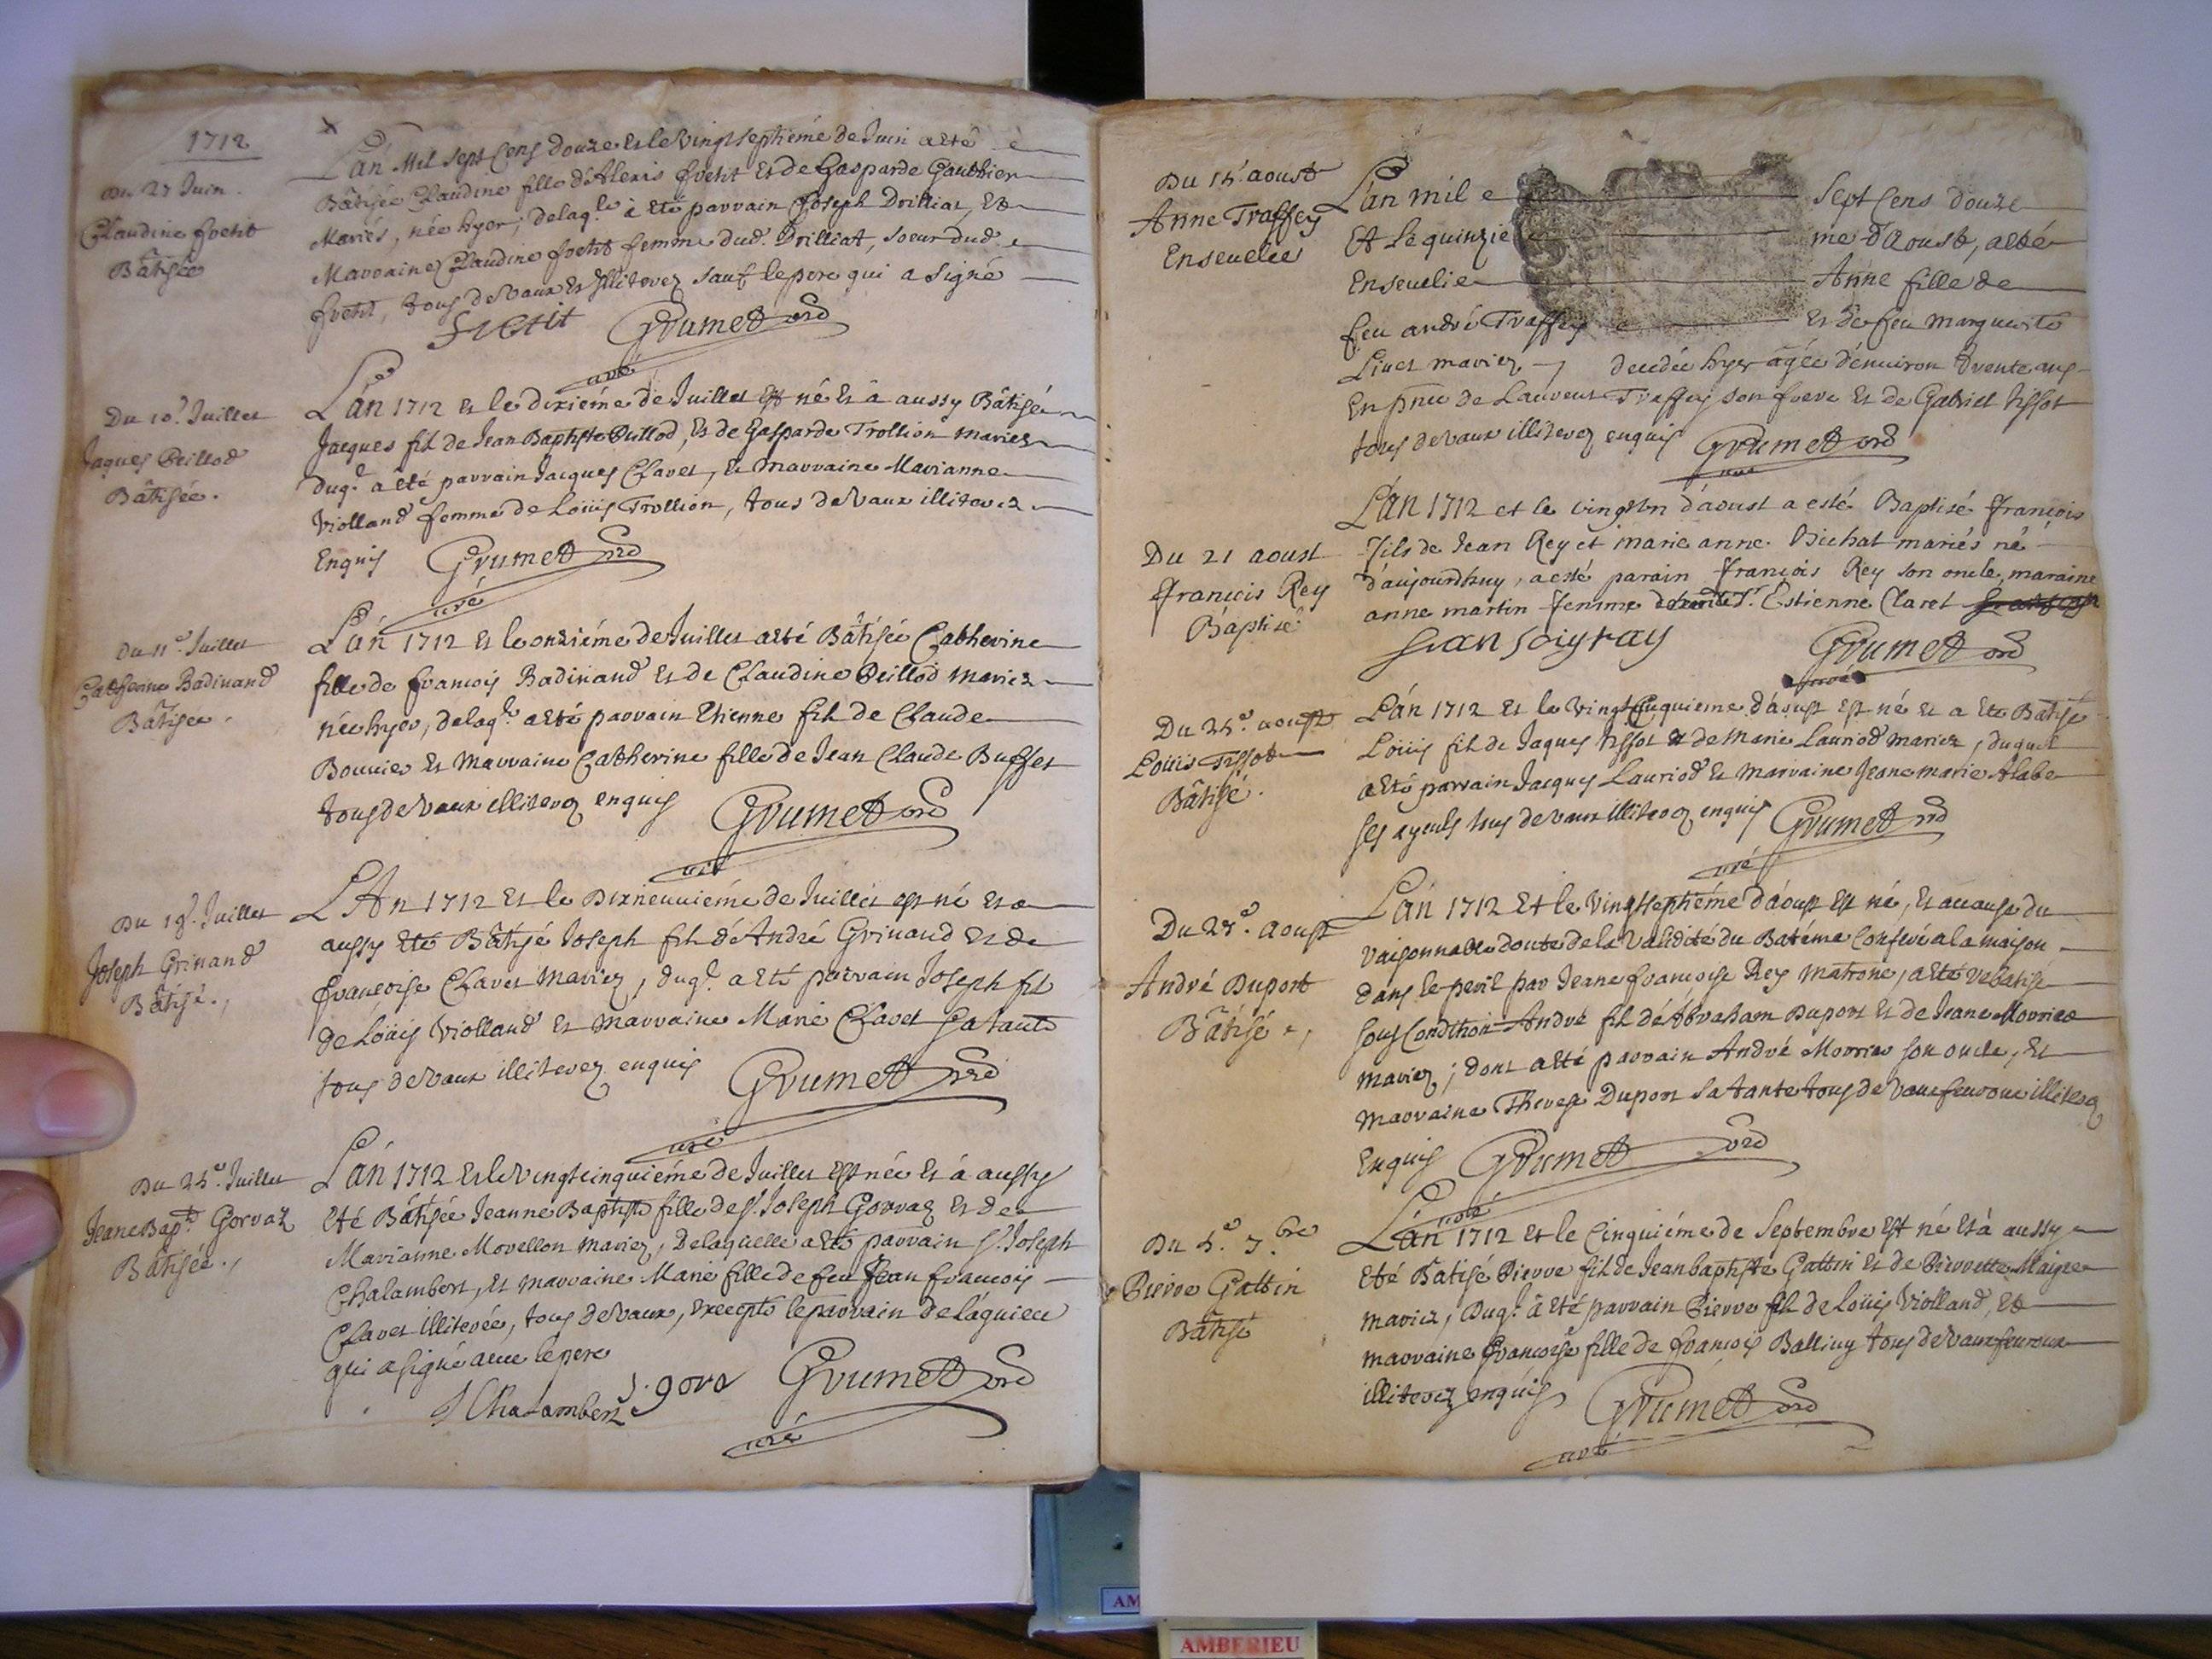 1712
Du 27 Juin.
Claudine fretit
Bâtisée
L'an Mil sept Cens douze et le vingt septiéme de Juin a eté
Bâtisée Claudine fille d'Alexis fretit et de Gasparde Gauthier
Mariés, née hyer; delaq.le à eté parrain Joseph Drilliat, et
Marraine Claudine fretit femme dud. Drilliat, soeur dud.
fretit, tous de Vaux et Illiterez sauf le pere qui a signé
fretit Grumet
curé
Du 10.e Juillet
Jaques Peillod
Bâtisée.
L'an 1712 et le dixiéme de Juillet est né et à aussy Bâtisé
Jacques fil de Jean Baptiste Peillod, et de Gasparde Trollion mariez
duq.l a eté parrain Jacques Clavet, et marraine Marianne
Violland femme de Loüis Trollion, tous de Vaux illiterez
Enquis Grumet
curé
Du 11.e Juillet
Catherine Badinand
Bâtisée.
L'an 1712 et le onziéme de Juillet a eté Bâtisée Catherine
fille de francois Badinand et de Claudine Peillod mariez
née hyer, delaq.le a eté parrain Etienne fil de Claude
Bouvier et Marraine Catherine fille de Jean Claude Buffet
tous de Vaux illiterez enquis Grumet
curé
Du 19.e Juillet
Joseph Grinand
Bâtisé.
L'An 1712 et le Dixneuviéme de Juillet est né et a
aussy eté Bâtisé Joseph fil d'André Grinand et de
françoise Clavet Mariez, duq.l a eté parrain Joseph fil
de Loüis Violland et marraine Marie Clavet sa tante
tous de Vaux illiterez enquis Grumet
curé
Du 25.e Juillet
Jeane Bap.te Gorvaz
Bâtisée.
L'an 1712 et le Vingtcinquiéme de Juillet est née et à aussy
eté Bâtisée Jeanne Baptiste fille de s.r Joseph Gorvaz et de
Marianne Morellon mariez, Delaquelle a eté parrain s.r Joseph
Chalambert, et marraine Marie fille de feu Jean francois
Clavet illiterée, tous de Vaux, excepté le parrain de Laguieu
qui a signé avec le pere
J Chalambert J. gorva Grumet
curé
Du 15.e aoust
Anne Traffey
Enseuelie
L'an mil sept Cens douze
Et le quinziéme d'Aoust, a eté
Enseuelie Anne fille de
feu andré Traffey et de feu marguerite
Livet mariez decedée hyer âgée d'environ trente ans
En pnce de Laurent Traffey son frere et de Gabriel tissot
tous de vaux illiterez enquis Grumet
curé
Du 21 aoust
françois Rey
Baptisé
L'an 1712 et le vingt un d'aoust a esté Baptisé françois
fils de Jean Rey et marie anne Bichat mariés né
d'aujourdhuy, a esté parain françois Rey son oncle, maraine
anne martin femme de s.r Estienne Claret
Grumet
curé
Du 25.e aoust
Loüis Tissot
Bâtisé.
L'an 1712 et le vingt Cinquieme d'aoust est né et a eté Bâtisé
Loüis fil de Jaques tissot et de Marie Lauriod mariez, duquel
a eté parrain Jacques Lauriod et Marraine Jeane marie Alabe
ses ayeuls tous de vaux illiterez enquis Grumet
curé
Du 27.e Aoust
André Duport
Bâtisé
L'an 1712 Et le Vingt septiéme d'aoust est né, et a cause du
raisonnable doute de la validité du Batéme Conferé a la maison
dans le peril par Jeane francoise Rey matrone, a eté rebatisé
sous Condition André fil d'Abraham Duport et de Jeane Morrier
mariez; dont a eté parrain André Morrier son oncle, et
marraine Therese Duport sa tante tous de Vaux feuroux illiterez
Enquis Grumet
curé
Du 5.e 7.bre
Pierre Gattin
Bâtisé
L'an 1712 et le Cinquiéme de Septembre est né et à aussy
eté Batisé Pierre fil de Jean baptiste Gattin et de Pierrette Maigre
mariez, Duq.l à eté parrain Pierre fil de Loüis Violland, et
marraine francoise fille de francois Balliuy tous de vaux feuroux
illiterez enquis Grumet
curé
AM
AMBERIEU